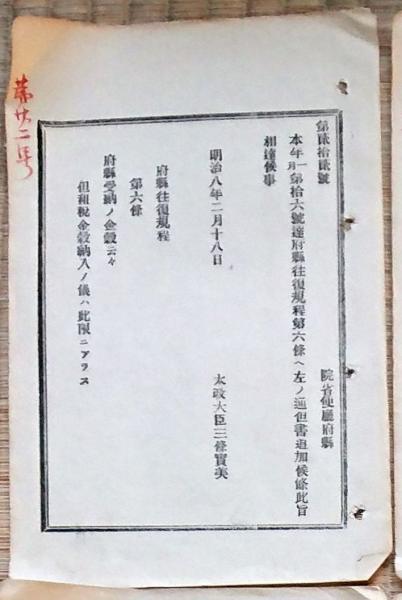 第貳拾貳號
院省使廳府縣
本年一月第拾六號達府縣往復規程第六條ヘ左ノ通但書追加候條此旨
相達候事
明治八年二月十八日
太政大臣三條實美
府縣往復規程
第六條
府縣受納ノ金穀云々
但租税金穀納入ノ儀ハ此限ニアラス
第廿二号